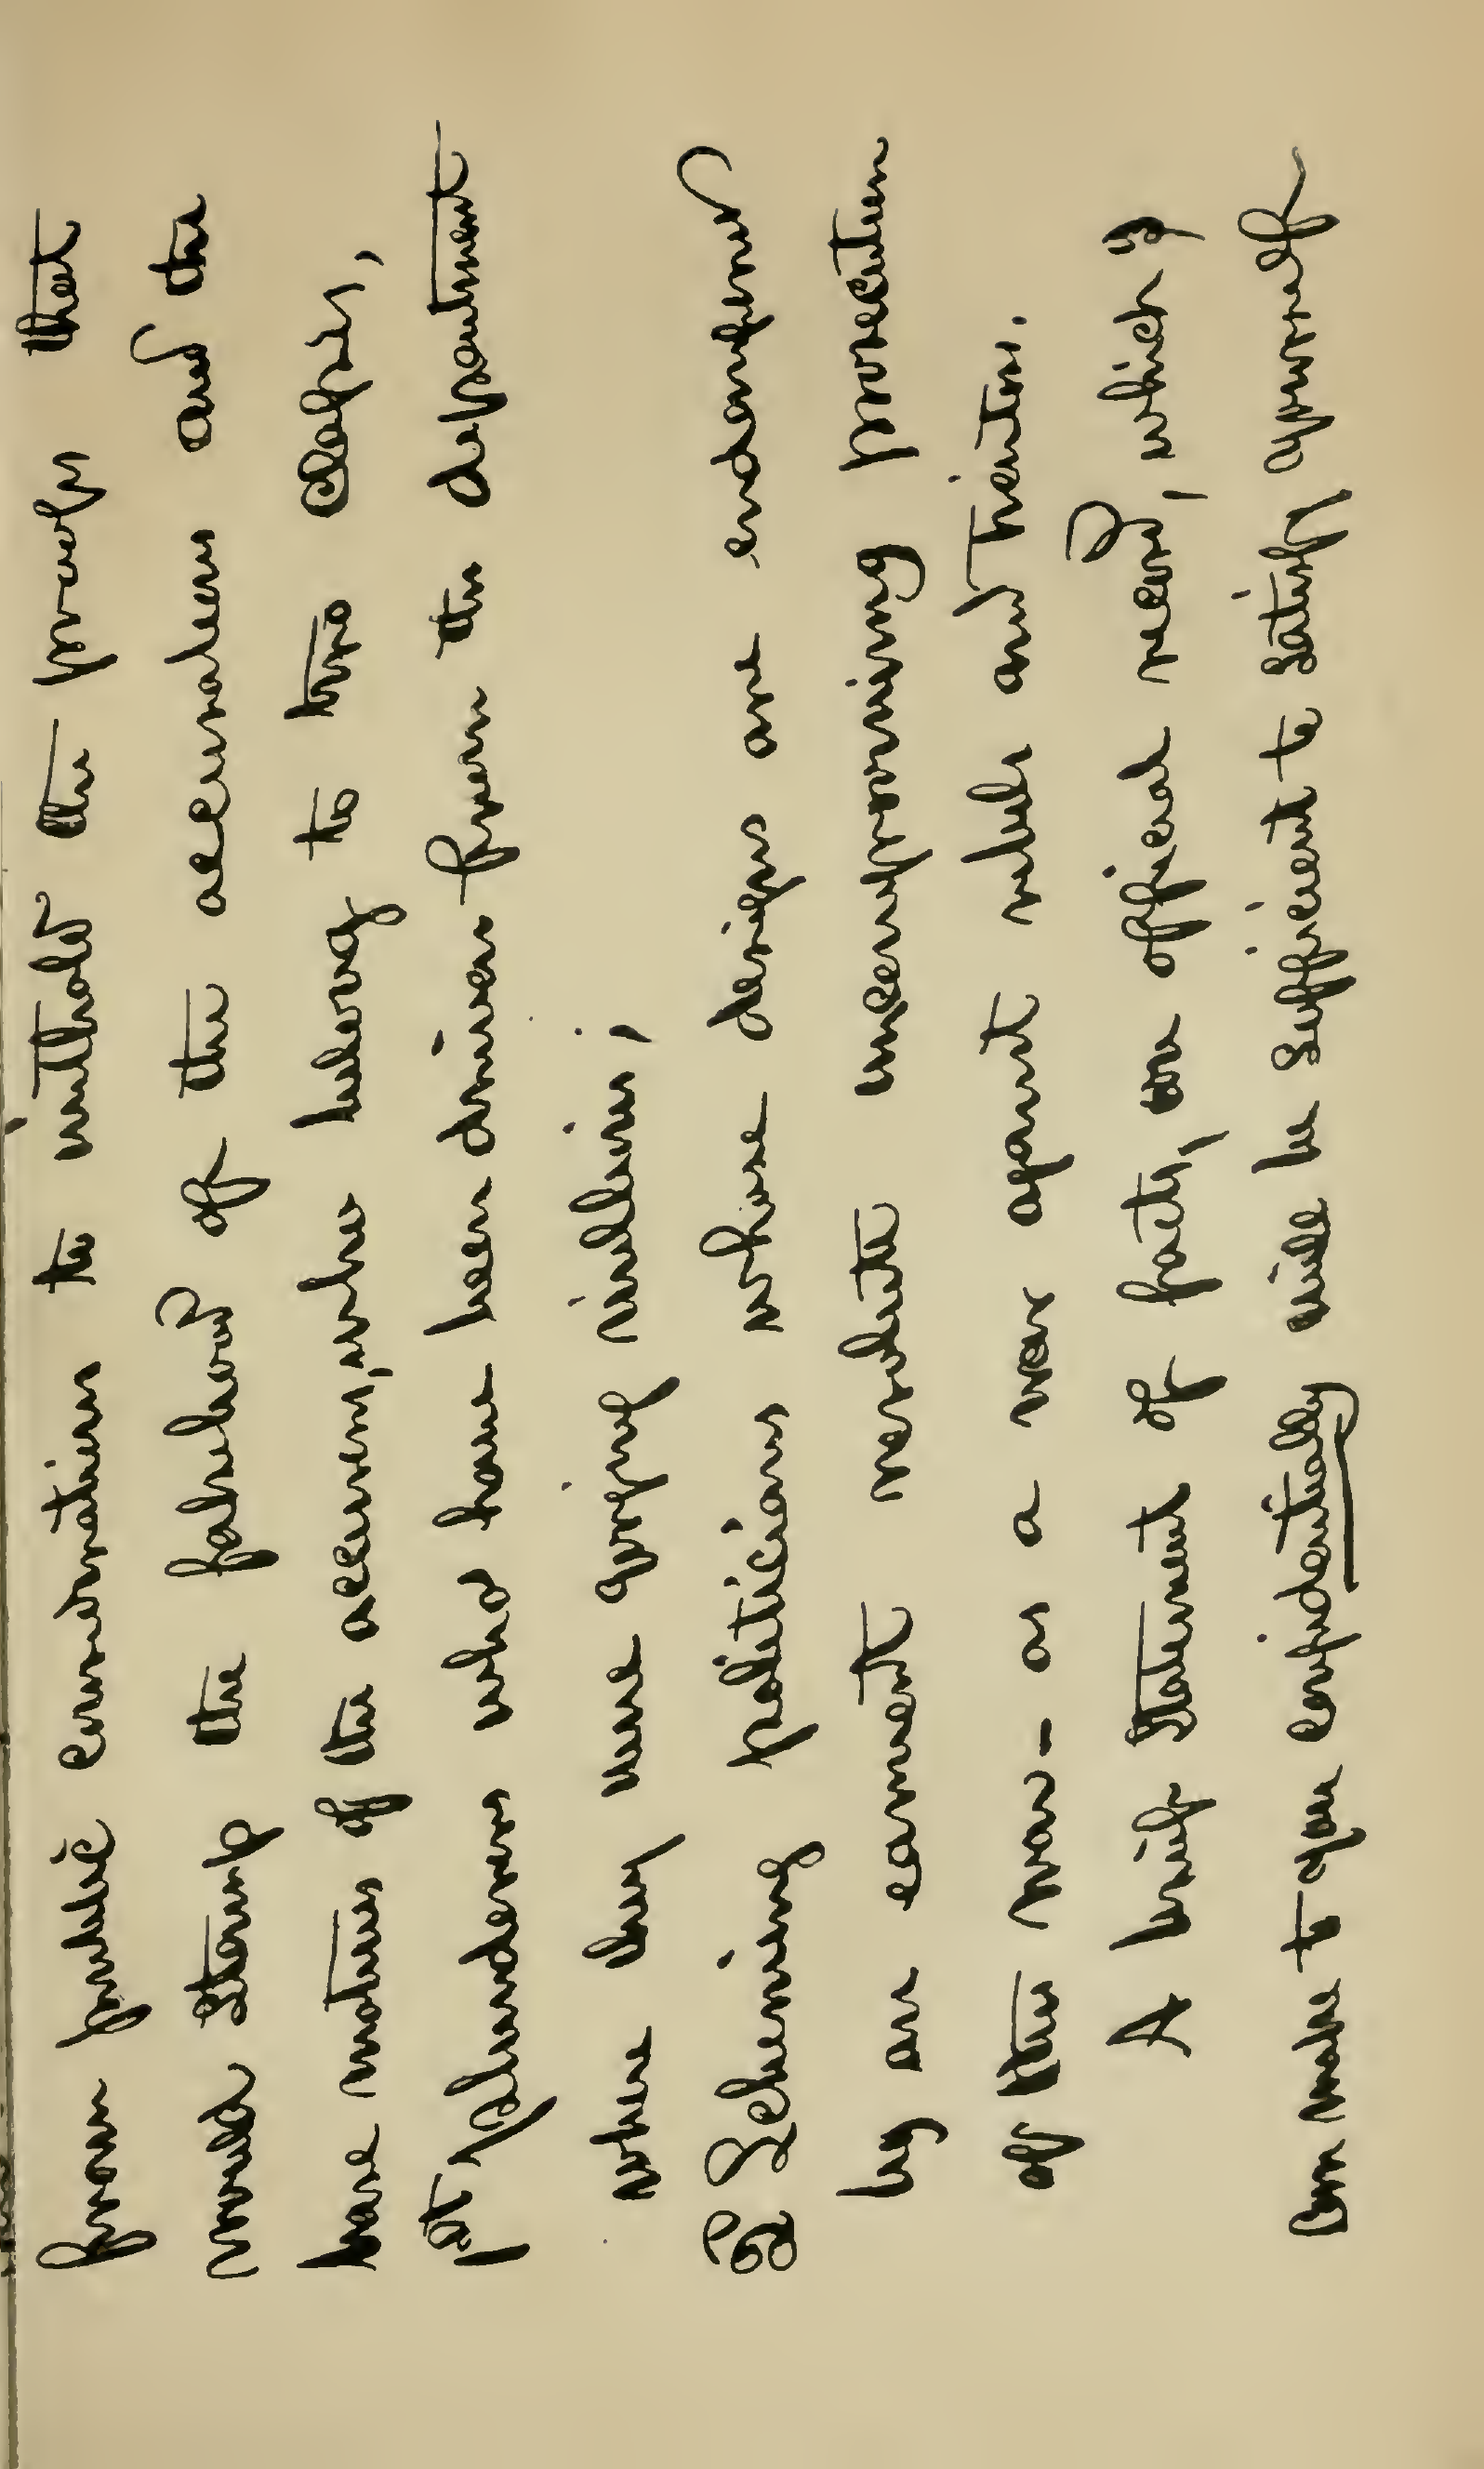 from public considerations to withold the proofs that
would stamp the falsehood of the accusations and the
base motives of the accusers, who belong to two classes,
1st Plunderers who have been driven from the department
where they were going millions;
2d Scheming politicians whose designs are endangered
by an earnest resolute uncompromising prosecution
of this war – as a war against rebels and traitors.
A brief statement of facts, on official record, which I
can make to you confidentially will be sufficient to satisfy yourself